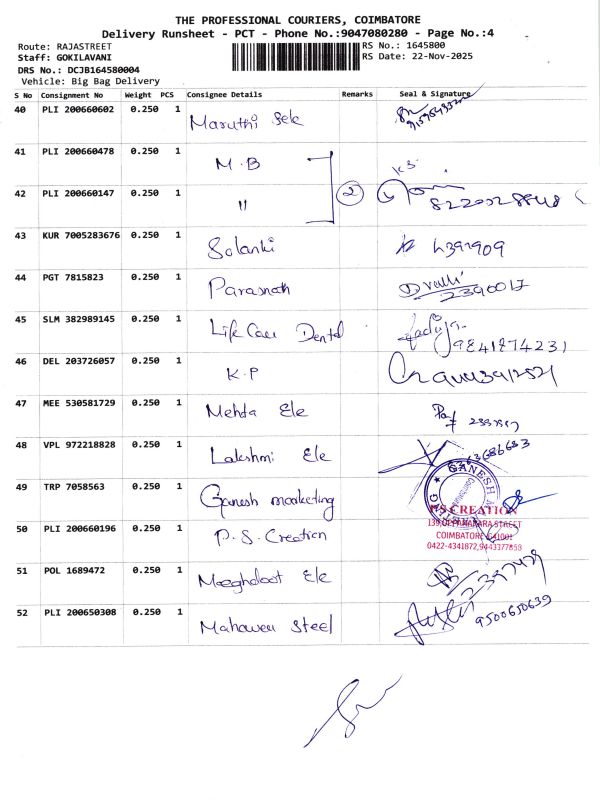 THE PROFESSIONAL COURIERS, COIMBATORE
Delivery Runsheet - PCT - Phone No.:9047080280 - Page No.:4
Route: RAJASTREET
Staff: GOKILAVANI
DRS No.: DCJB164580004
Vehicle: Big Bag Delivery
RS No.: 1645800
RS Date: 22-Nov-2025
S No Consignment No Weight PCS Consignee Details Remarks Seal & Signature
40 PLI 200660602 0.250 1 Maruthi Sek
41 PLI 200660478 0.250 1 M.B
42 PLI 200660147 0.250 1 " 2
43 KUR 7005283676 0.250 1 Solanki
44 PGT 7815823 0.250 1 Parasnath 2390017
45 SLM 382989145 0.250 1 Life Care Dental 9841874231
46 DEL 203726057 0.250 1 K.P
47 MEE 530581729 0.250 1 Mehta Ele
48 VPL 972218828 0.250 1 Lakshmi Ele
49 TRP 7058563 0.250 1 Ganesh marketing
GANESH
50 PLI 200660196 0.250 1 P.S. Creation
P.S CREATION
COIMBATORE-641001
0422-4341872,
51 POL 1689472 0.250 1 Ele
52 PLI 200650308 0.250 1 Mahaveer Steel 9500650639